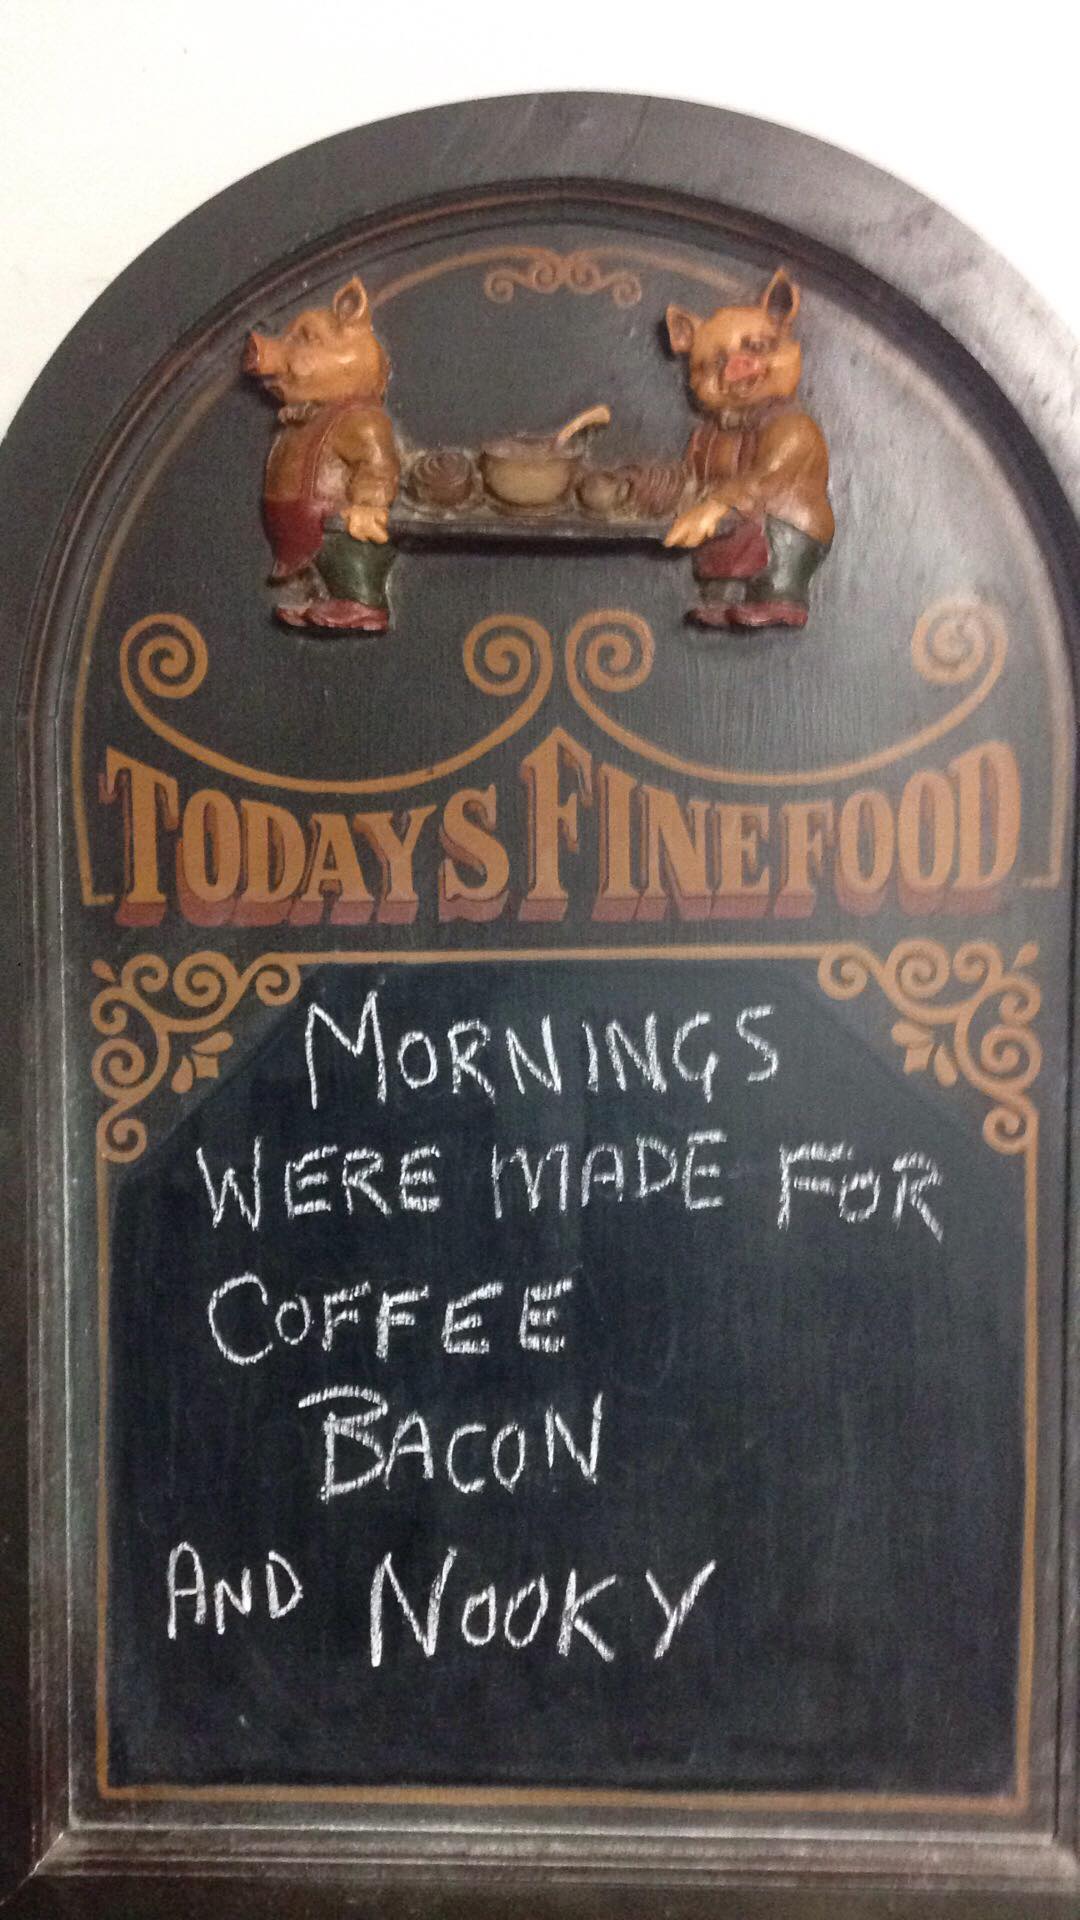 TODAYS FINE FOOD
MORNINGS
WERE MADE FOR
COFFEE
BACON
AND NOOKY